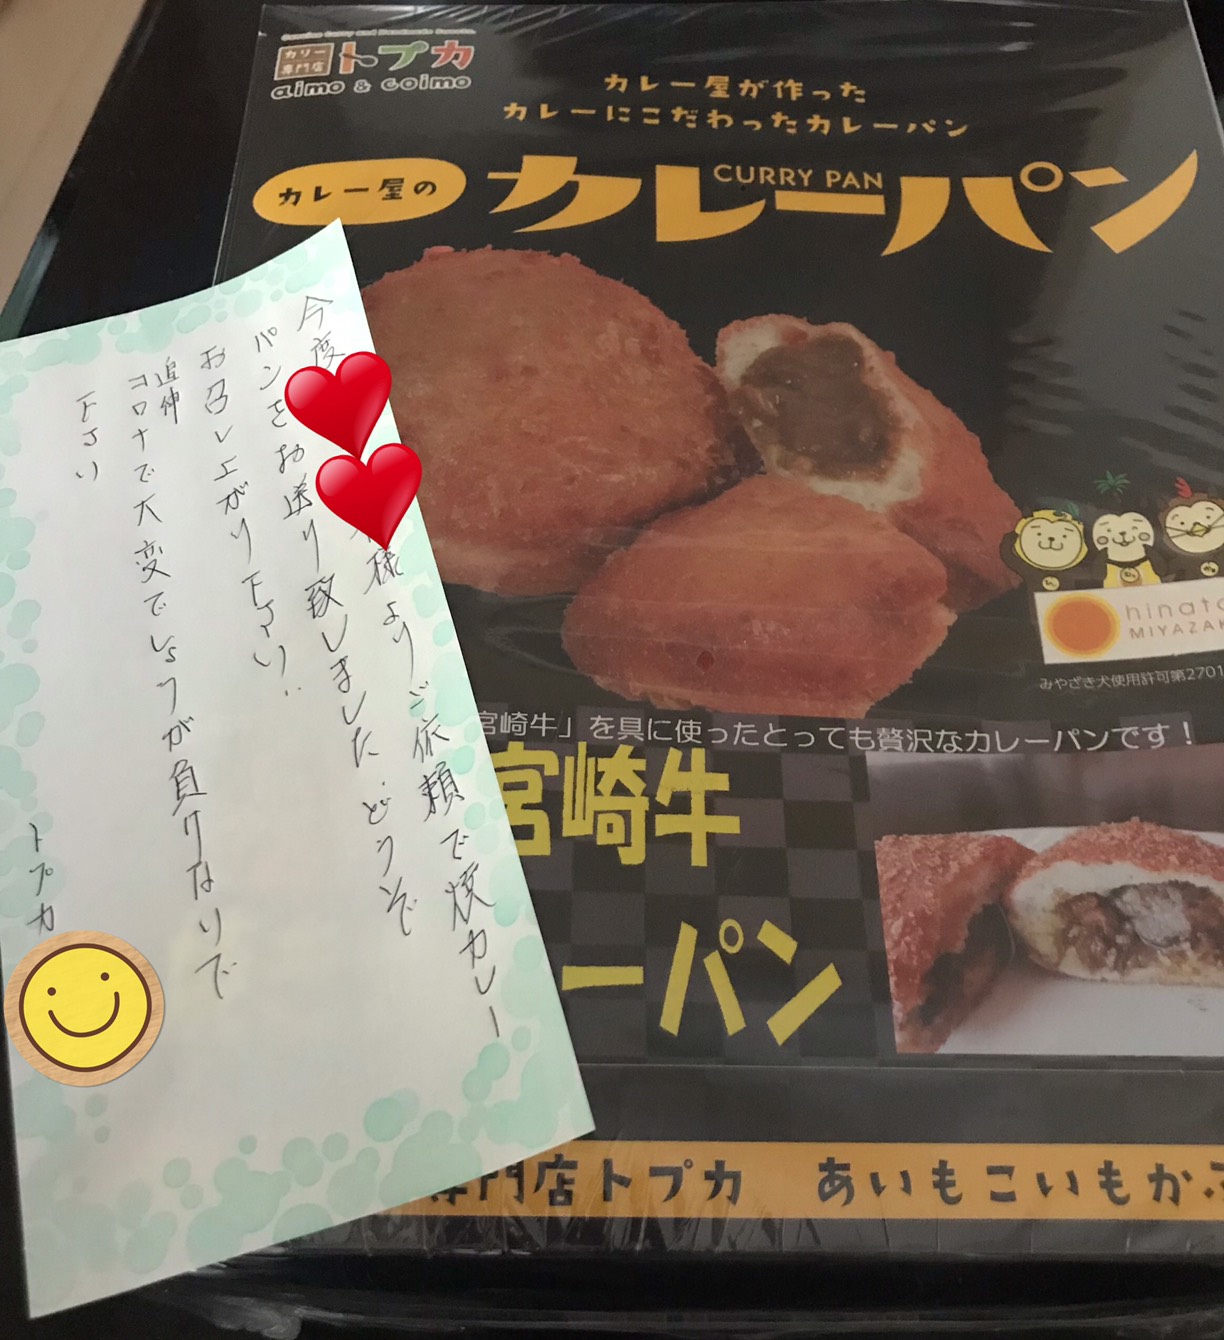 Genuine Curry and Handmade Sweets.
カリー
専門店
トプカ
aimo & coimo
カレー屋が作った
カレーにこだわったカレーパン
カレー屋の
カレーパン
CURRY PAN
hinata
MIYAZAK
みやざき犬使用許可第2701
宮崎牛」を具に使ったとっても贅沢なカレーパンです！
宮崎牛
ーパン
専門店トプカ あいもこいもか
今度
様よりご依頼で焼カレー
パンをお送り致しました.どうぞ
お召し上がり下さい.
追伸
コロナで大変でしょうが負けないで
下さい
トプカ